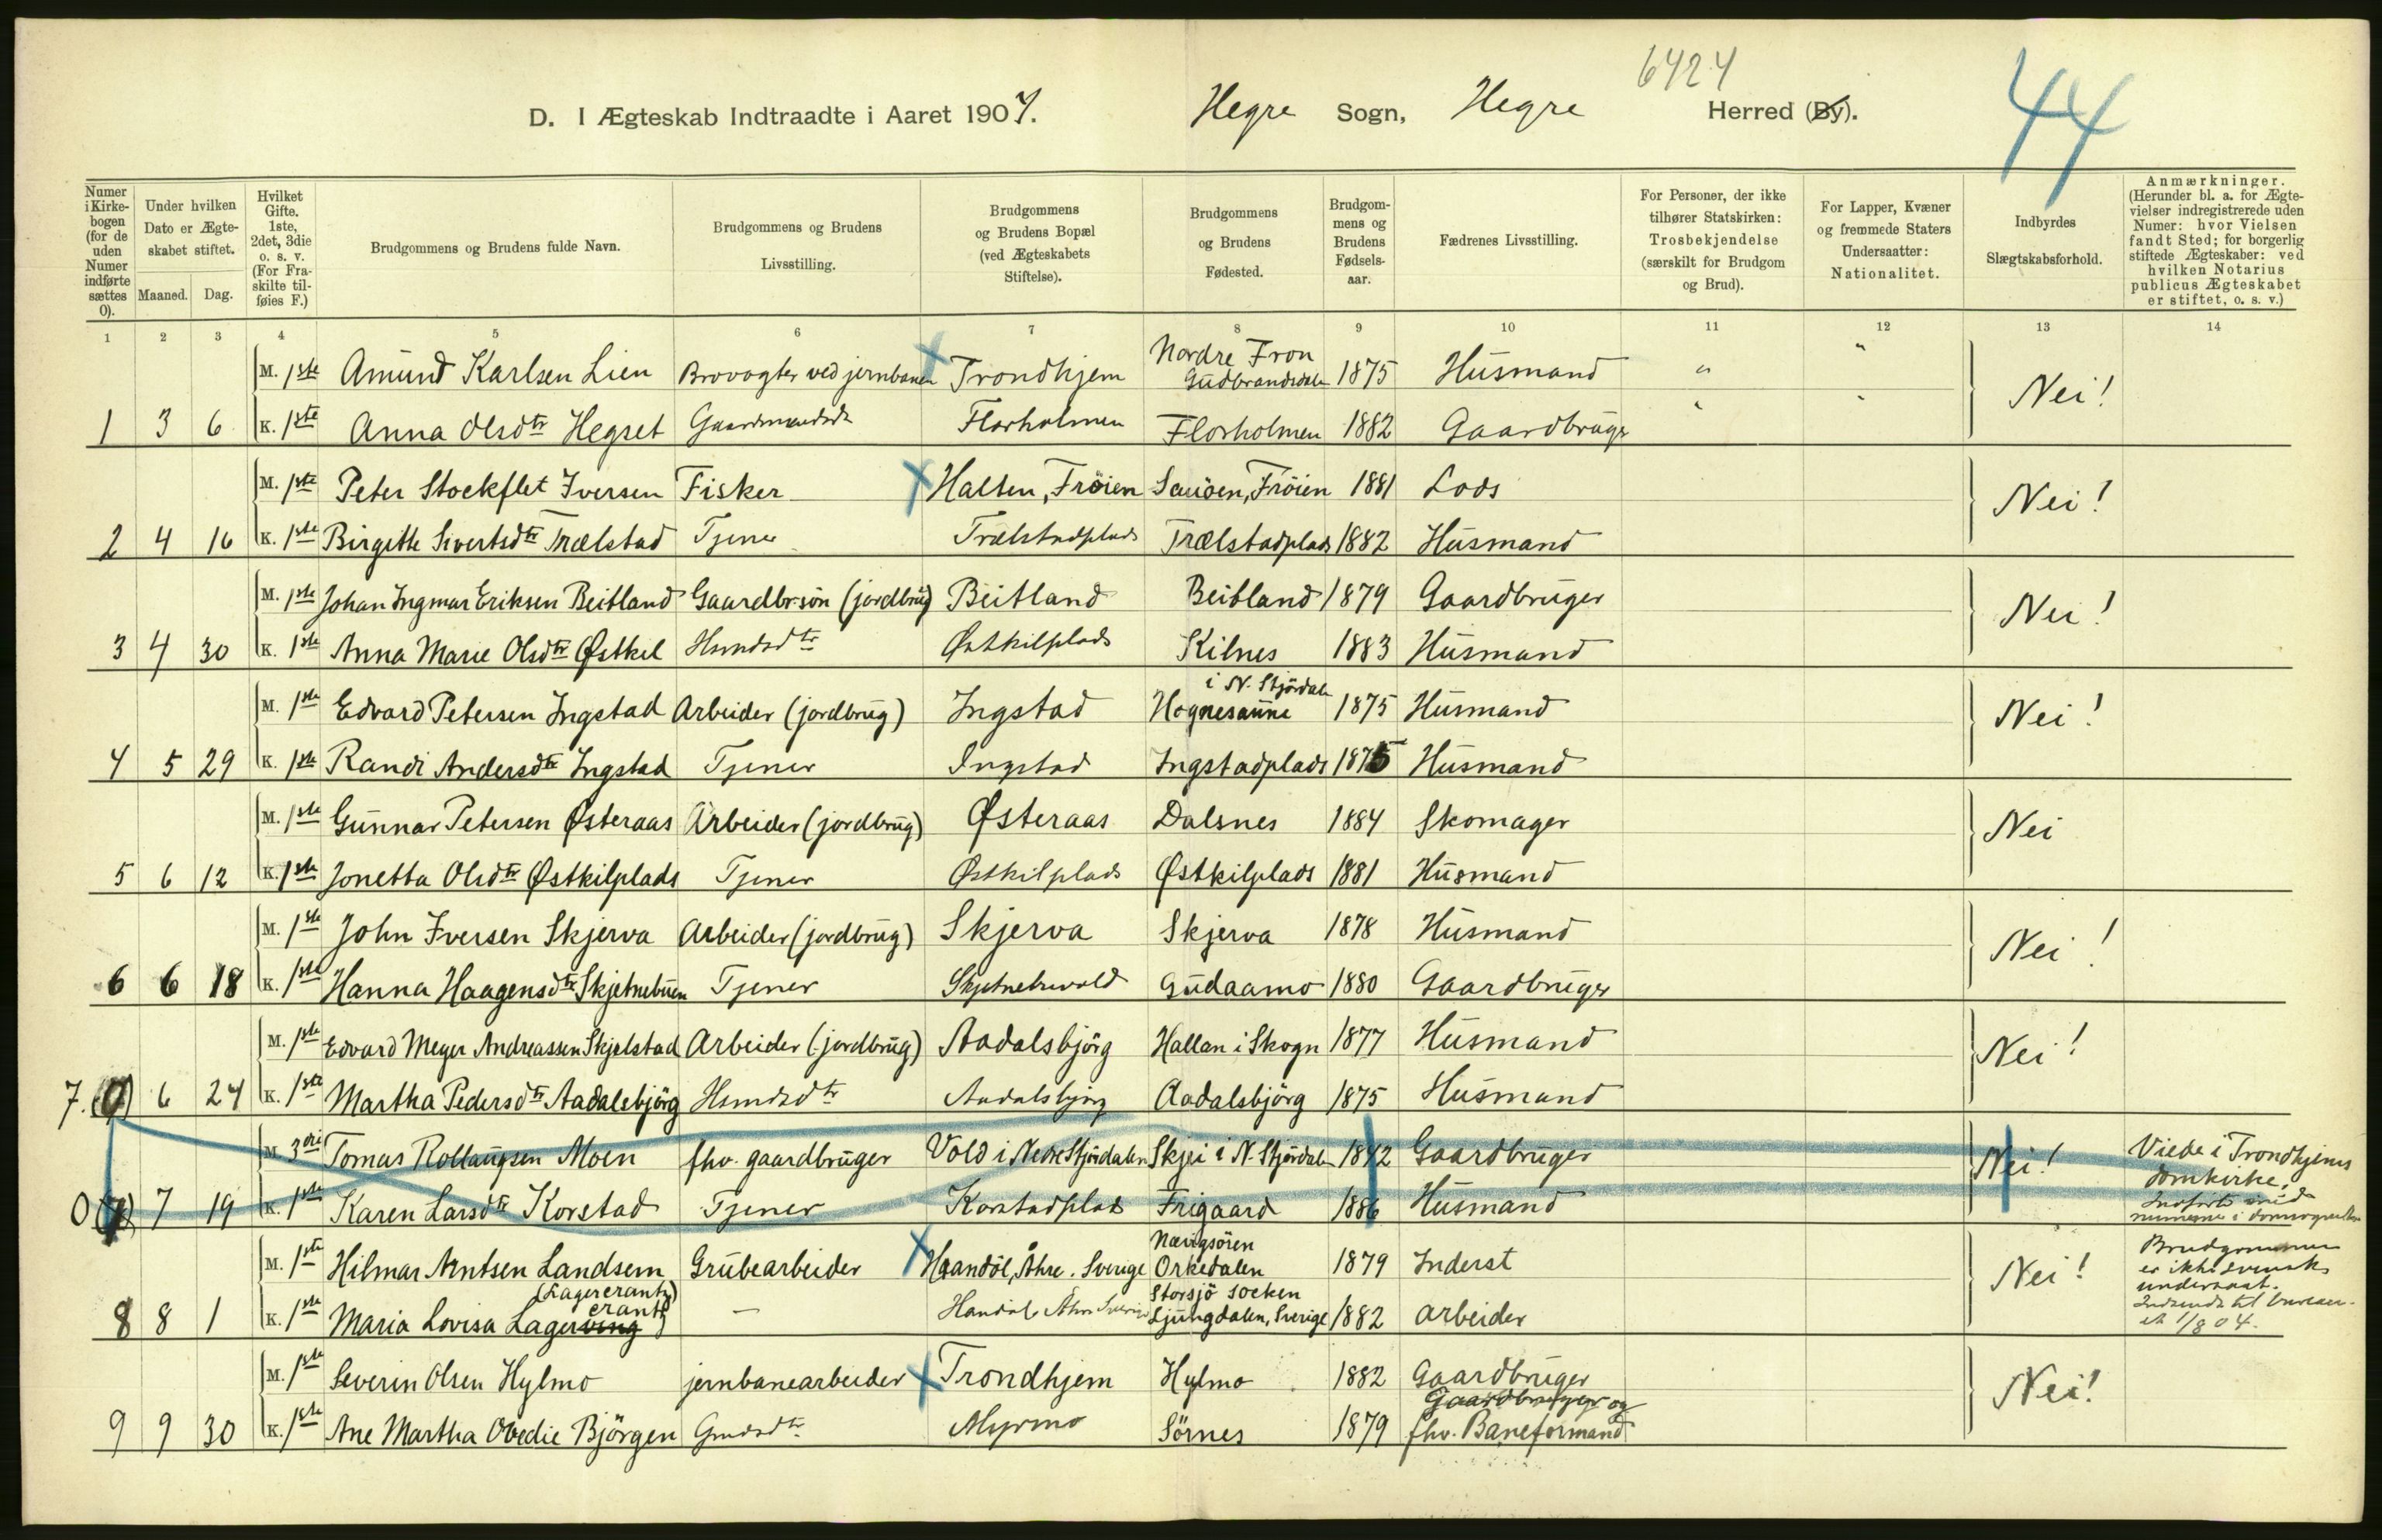 6424
44
D. I Ægteskab Indtraadte i Aaret 1907. Hegre Sogn, Hegre Herred (By).
Numer i Kirkebogen (for de uden Numer indførte sættes 0).
Under hvilken Dato er Ægteskabet stiftet.
Maaned. Dag.
Hvilket Gifte. 1ste, 2det, 3die o. s. v. (For Fraskilte tilføies F.)
Brudgommens og Brudens fulde Navn.
Brudgommens og Brudens Livsstilling.
Brudgommens og Brudens Bopæl (ved Ægteskabets Stiftelse).
Brudgommens og Brudens Fødested.
Brudgommens og Brudens Fødselsaar.
Fædrenes Livsstilling.
For Personer, der ikke tilhører Statskirken: Trosbekjendelse (særskilt for Brudgom og Brud).
For Lapper, Kvæner og fremmede Staters Undersaatter: Nationalitet.
Indbyrdes Slægtskabsforhold.
Anmærkninger. (Herunder bl. a. for Ægtevielser indregistrerede uden Numer: hvor Vielsen fandt Sted; for borgerlig stiftede Ægteskaber: ved hvilken Notarius publicus Ægteskabet er stiftet, o. s. v.)
1 2 3 4 5 6 7 8 9 10 11 12 13 14
M. 1ste Amund Karlsen Lien Brovogter ved jernbanen Trondhjem Nordre Fron Gudbrandsdalen 1875 Husmand " " Nei!
1 3 6 K. 1ste Anna Olsdtr Hegset Gaardmandsdtr Florholmen Florholmen 1882 Gaardbruger
M. 1ste Peter Stockflet Iversen Fisker Halten, Frøien Sauøen, Frøien 1881 Lods Nei!
2 4 16 K. 1ste Birgitte Sivertsdtr Trælstad Tjener Trælstadplads Trælstadplads 1882 Husmand
M. 1ste Johan Ingmar Eriksen Beitland Gaardbr.søn (jordbrug) Beitland Beitland 1879 Gaardbruger Nei!
3 4 30 K. 1ste Anna Marie Olsdtr Østkil Hsmdsdtr Østkilplads Kilnes 1883 Husmand
M. 1ste Edvard Petersen Ingstad Arbeider (jordbrug) Ingstad Hognesaune i N. Stjørdalen 1875 Husmand Nei!
4 5 29 K. 1ste Randi Andersdtr Ingstad Tjener Ingstad Ingstadplads 1875 Husmand
M. 1ste Gunnar Petersen Østeraas Arbeider (jordbrug) Østeraas Dalsnes 1884 Skomager Nei
5 6 12 K. 1ste Jonetta Olsdtr Østkilplads Tjener Østkilplads Østkilplads 1881 Husmand
M. 1ste John Iversen Skjerva Arbeider (jordbrug) Skjerva Skjerva 1878 Husmand Nei!
6 6 18 K. 1ste Hanna Haagensdtr Skjetnebuen Tjener Gudaamo 1880 Gaardbruger
M. 1ste Edvard Meyer Andreassen Skjelstad Arbeider (jordbrug) Aadalsbjörg Hallan i Skogn 1877 Husmand Nei!
7. (0) 6 24 K. 1ste Martha Pedersdtr Aadalsbjörg Hsmdsdtr Aadalsbjörg Aadalsbjörg 1875 Husmand
M. 3die Tomas Rollaugsen Moen fhv. gaardbruger Vold i Nedre Stjørdalen Skjei i N. Stjørdalen 1842 Gaardbruger Nei! Viede i Trondhjems domkirke.
0 (7) 7 19 K. 1ste Karen Larsdtr Korstad Tjener Korstadplads Frigaard 1886 Husmand
M. 1ste Hilmar Arntsen Landsem Grubearbeider Haandöl, Åhre. Sverige Nævigsören Orkedalen 1879 Inderst Nei! Brudgommen er ikke svensk undersaat.
8 8 1 K. 1ste Maria Lovisa Lagerving (Lagercrantz) crantz — Handöl, Åhre Sverige Storsjö Socken Ljungdalen, Sverige 1882 Arbeider
M. 1ste Severin Olsen Hylmo jernbanearbeider Trondhjem Hylmo 1882 Gaardbruger Nei!
9 9 30 K. 1ste Ane Martha Ovedie Björgen Grmdsdtr Myrmo Sörnes 1879 Gaardbruger og fhv. Baneformand